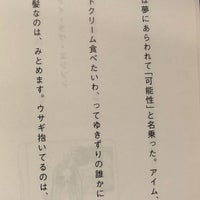 は夢にあらわれて「可能性」と名乗った。アイム、
トクリーム食べたいわ、ってゆきずりの誰かに
髪なのは、みとめます。ウサギ抱いてるのは、